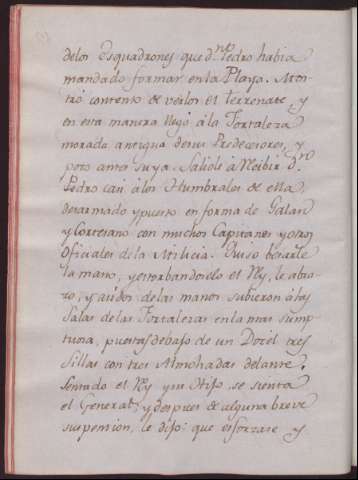 delos Esquadrones que dⁿ Pedro habia
mandado formar en la Playa. Mos-
tró contento de verlos el terrenate, y
en esta manera llegó á la Fortaleza
morada antigua de sus Predecesores, y
poco antes suya. Salióle á Recibir dⁿ
Pedro casi álos Humbrales de ella,
desarmado y puesto en forma de Galan
y Cortesano con muchos Capitanes y otros
Oficiales de la Milicia. Quiso besarle
la mano, y estorbandoselo el Rey, le abra-
zo, y asidos de las manos subieron á las
Salas de las Fortalezas en la mas sump-
tuosa, puestas debajo de un Dosel tres
Sillas con tres Almohadas delante.
Sentado el Rey y su Hijo, se sienta
el General, y despues de alguna breve
suspension, le dijo: que esforzase y